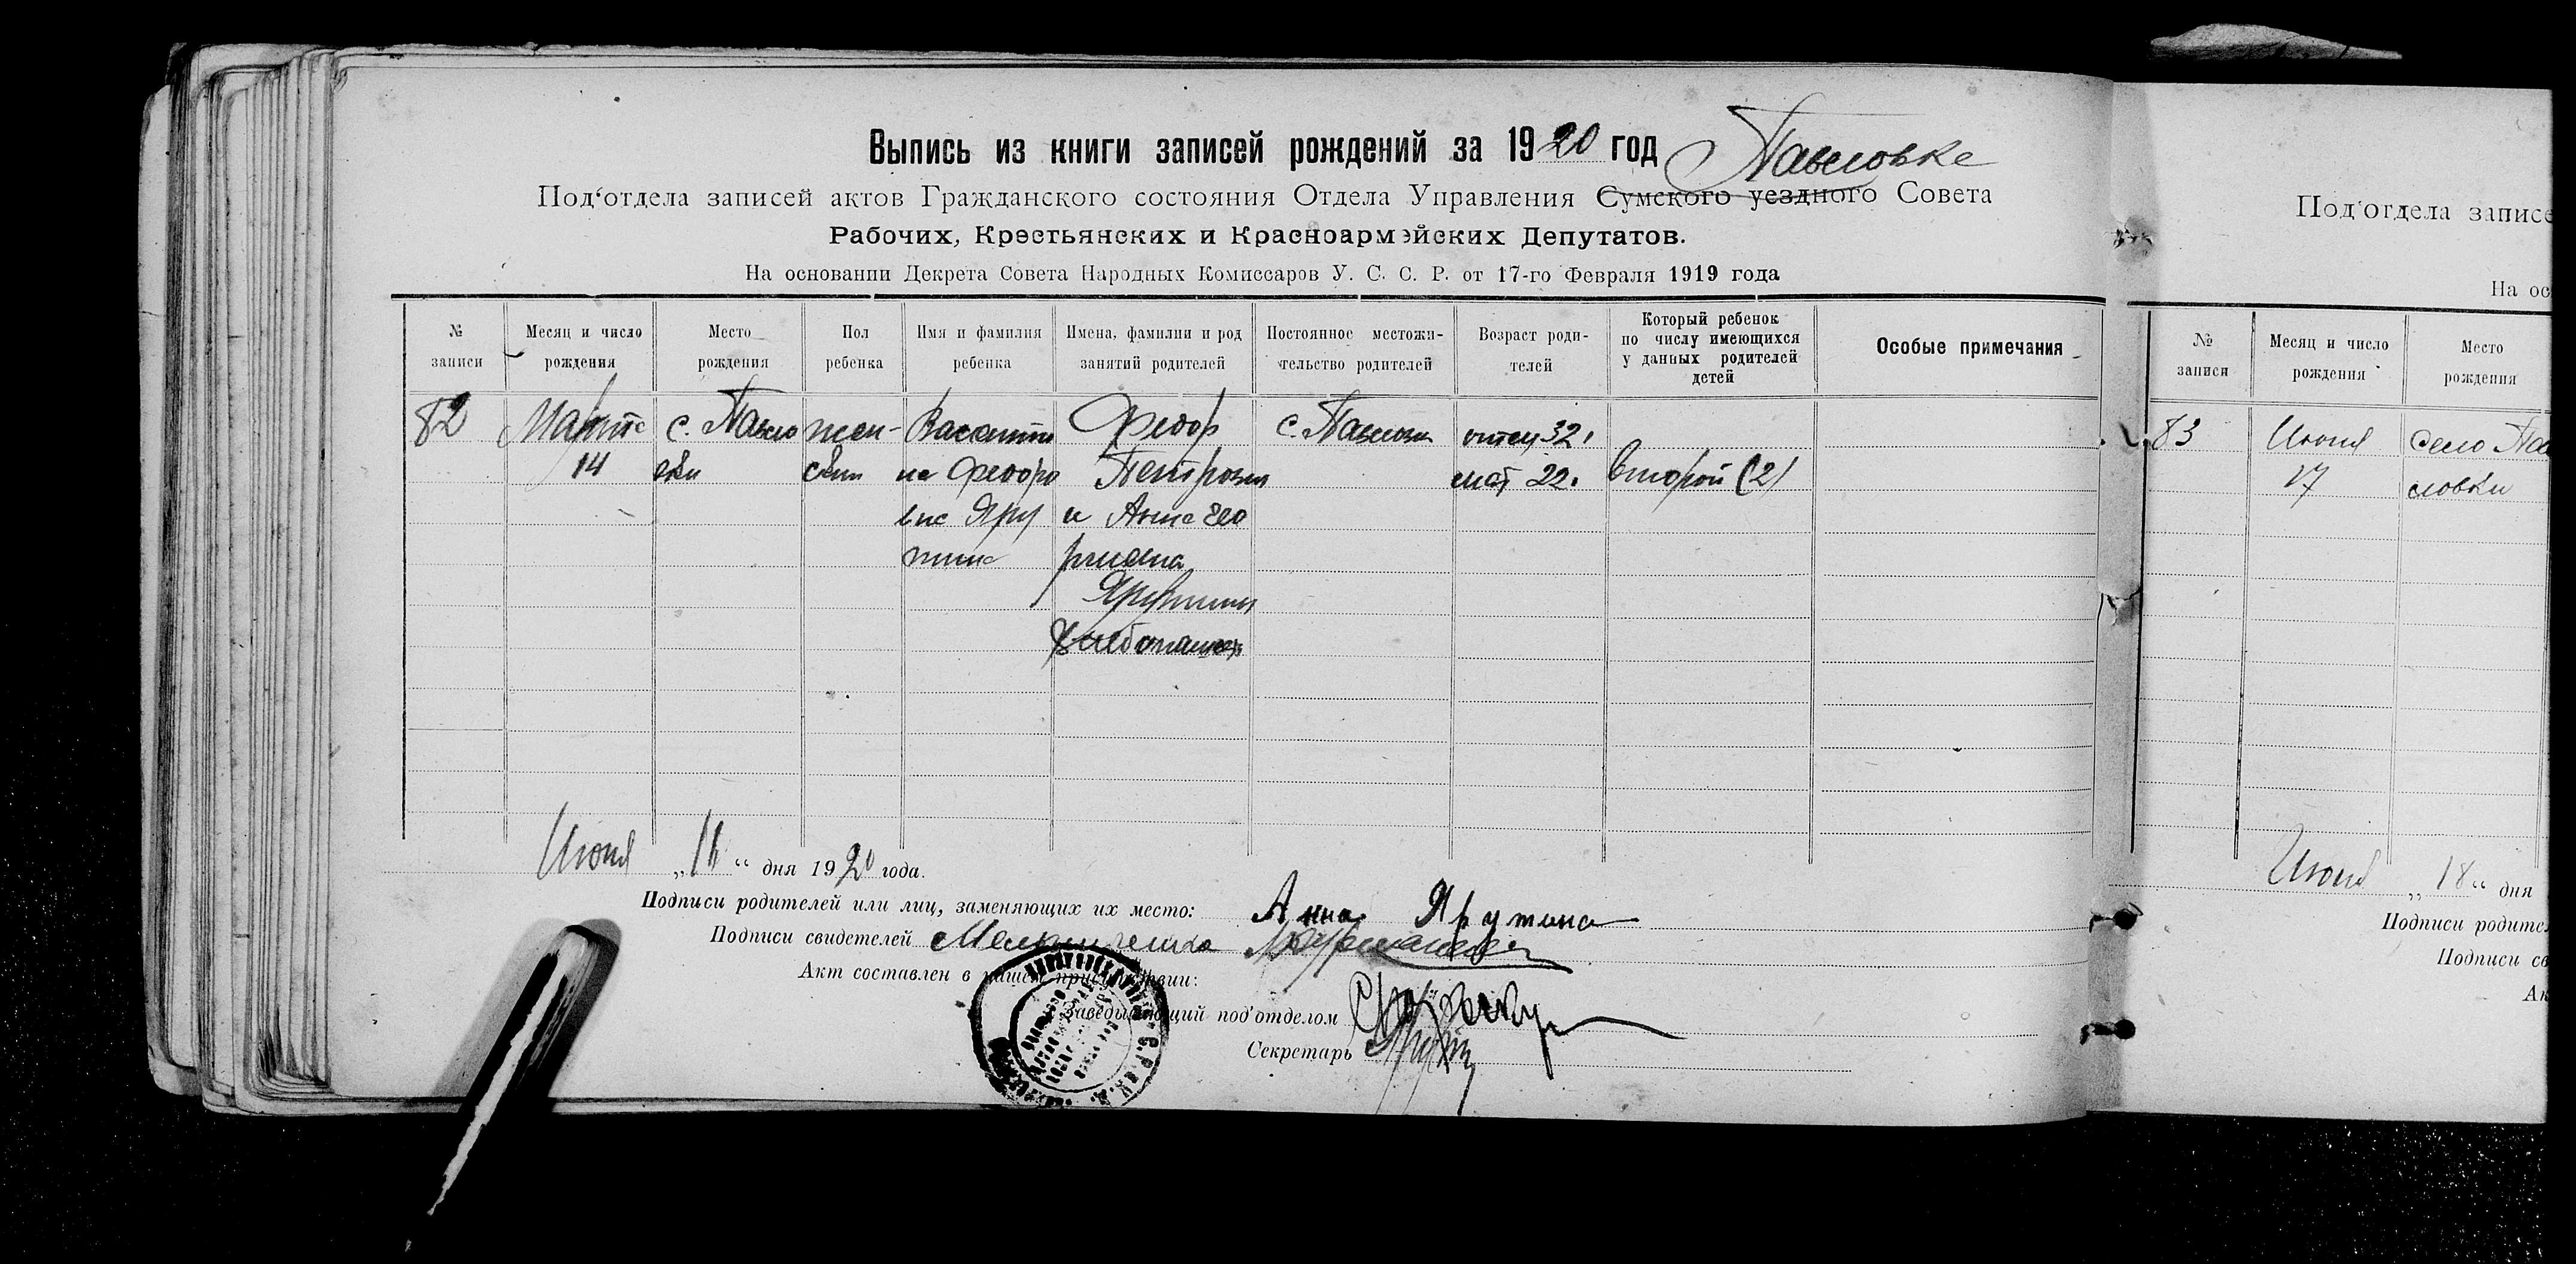 Выпись из книги записей рождений за 1920 год Павловке
Под‘отдела записей актов Гражданского состояния Отдела Управления Сумского уездного Совета
Рабочих, Крестьянских и Красноармейских Депутатов.
На основании Декрета Совета Народных Комиссаров У. С. С. Р. от 17-го Февраля 1919 года
№ записи
Месяц и число рождения
Место рождения
Пол ребенка
Имя и фамилия ребенка
Имена, фамилии и род занятий родителей
Постоянное местожительство родителей
Возраст родителей
Который ребенок по числу имеющихся у данных родителей детей
Особые примечания
82
Марта
14
с. Павло
вки
жен-
ский
на Федоро
вна Яру
тина
Федор
Петрович
и Анна Гео
ргиевна
Ярутины
с. Павловки
отец 32.
мат 22.
второй (2)
Июня „16“ дня 1920 года.
Подписи родителей или лиц, заменяющих их место: Анна Ярутина
Подписи свидетелей
Акт составлен в нашем присутствии:
Заведывающий под‘отделом
Секретарь
Под‘отдела записе
На ос
№ записи
Месяц и число рождения
Место рождения
83
Июня
17
Село Па
вловки
Июня „18“ дня
Подписи родител
Подписи св
Ак